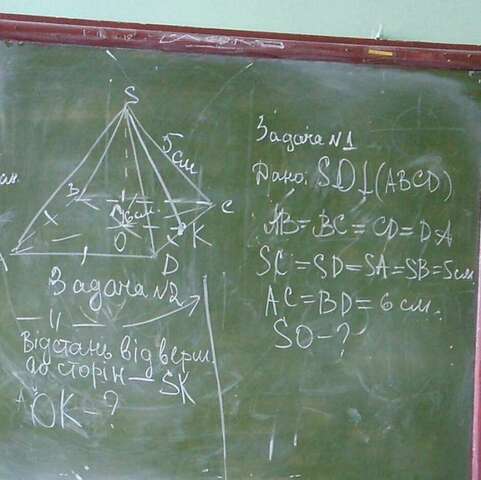 S
5 см
B
C
6 см.
O
K
D
Задача №2
— " —
Відстань від верш.
до сторін — SK
OK - ?
Задача №1
Дано: SO⊥(ABCD)
AB = BC = CD = DA
SC = SD = SA = SB = 5 см
AC = BD = 6 см.
SO - ?